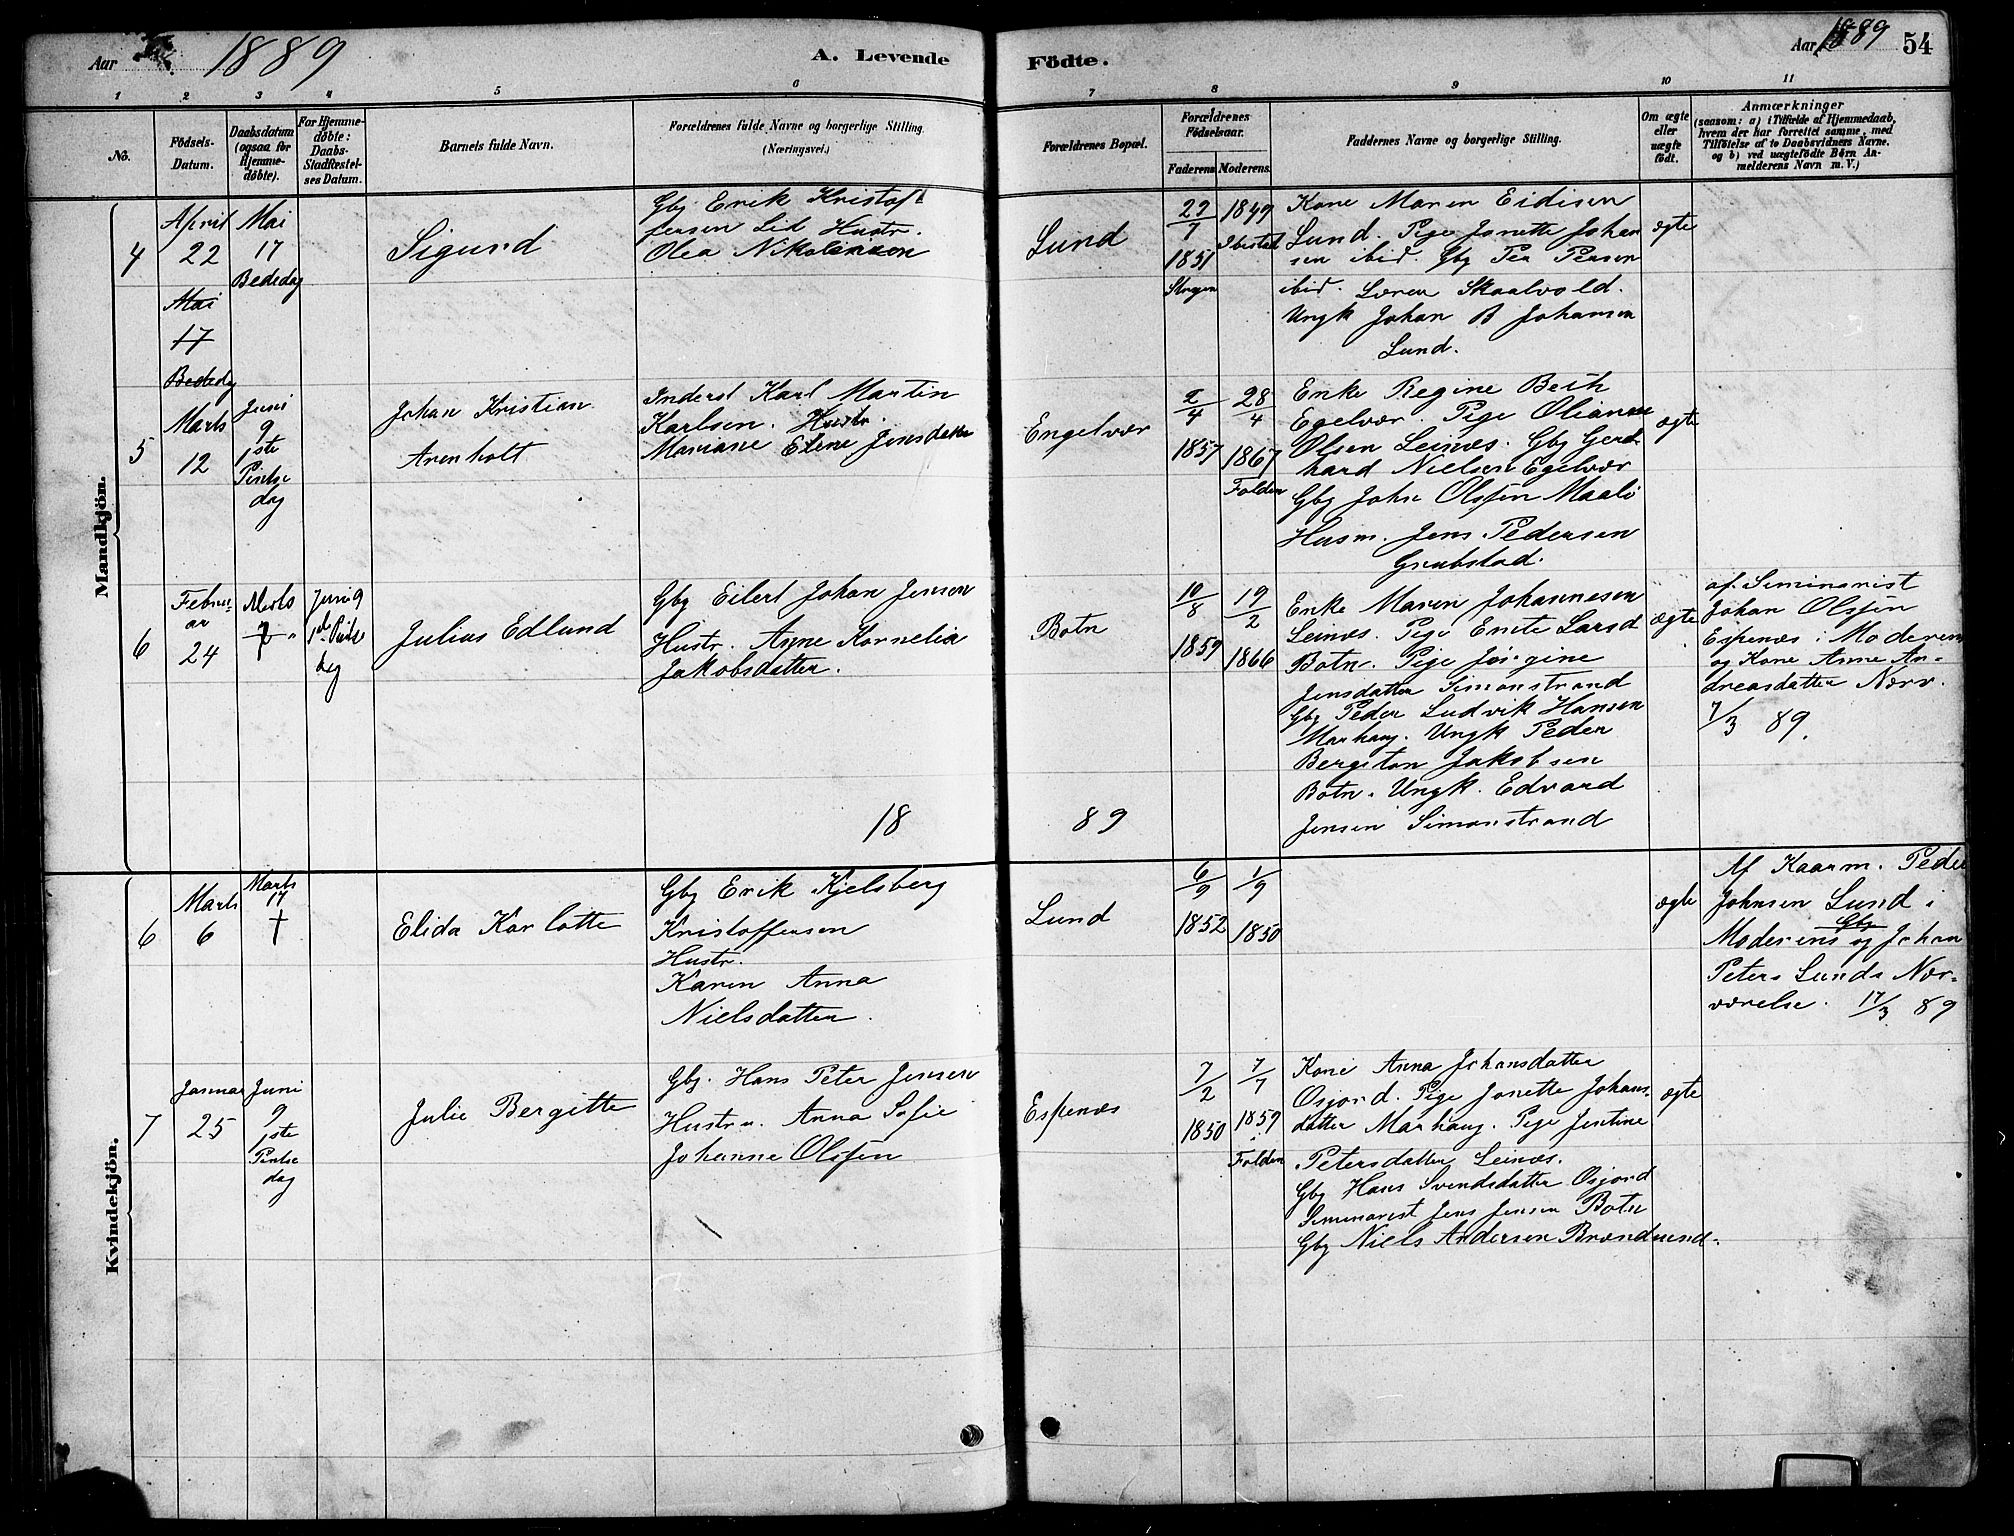 Aar 1889
A. Levende
Födte.
Aar 1889
54
1 2 3 4 5 6 7 8 9 10 11
No.
Födsels-
Datum.
Daabsdatum
(ogsaa for
Hjemme-
döbte).
For Hjemme-
döbte:
Daabs-
Stadfæstel-
ses Datum.
Barnets fulde Navn.
Forældrenes fulde Navne og borgerlige Stilling.
(Næringsvei.)
Forældrenes Bopæl.
Forældrenes
Födselsaar.
Faderens
Moderens
Faddernes Navne og borgerlige Stilling.
Om ægte
eller
uægte
födt.
Anmærkninger
(saasom: a) i Tilfælde af Hjemmedaab,
hvem der har forrettet samme, med
Tilföielse af to Daabsvidners Navne,
og b) ved uægtefödte Börn An-
melderens Navn m. V.)
Mandkjön.
4
April
22
Mai
17
Bededag
Mai
17
Bededag
Sigurd
Gbg Erik Kristof-
fersen Hustr.
Olea
Lund
29/7
1851
1849
Ibestad
Kone Maren Eidisen
Lund. Pige Jonette Johan
sen ibid Gbg Per Persen
ibid. Søren Skaalvold.
Ungk Johan B Johansen
Lund.
ægte
5
Marts
12
Juni
9
1ste
Pintse
dag
Johan Kristian
Arenholt
Inderst Karl Martin
Karlsen. Hustr
Mariane Eline Jensdatter
Engelvær
2/4
1857
28/4
1867
Folden
Enke Regine Beth
Egelvær. Pige
Olsen Leinæs. Gbg Gerd-
hard Nielsen Egelvær
Gbg Johan Olssen Maalø
Husm. Jens Pedersen
Grubstad.
ægte
6
Febru-
ar
24
Marts
7
Juni 9
1ste Pintse
dag
Julius Edlund
Gbg Eilert Johan Jensen
Hustr. Anne Kornelia
Jakobsdatter.
Botn
10/8
1859
19/2
1866
Enke Maren Johannesen
Leinæs. Pige Larsd
Botn. Pige Jørgine
Jensdatter Simonstrand
Gbg Peder Ludvik Hansen
Marhaug. Ungk Peder
Bergiton Jakobsen
Botn. Ungk. Edvard
Jensen Simonstrand
ægte
af Seminarist
Johan Olssen
Espenæs i Moderens
og Kone Anne An-
dreasdatter Nærv.
7/3 89.
18
89
Kvindekjön.
6
Marts
6
Marts
17
†
Elida Karlotte
Gbg Erik Kjelsberg
Kristoffersen
Hustr.
Karen Anna
Nielsdatter.
Lund
6/9
1852
1/9
1850
ægte
Af Kaarm. Peder
Johnsen Lund i
Gbg
Moderens og Johan
Peters Lunds Nær-
værelse. 17/3 89
7
Januar
25
Juni
9
1ste
Pintse
dag
Julie Bergitte
Gbg. Hans Peter Jensen
Hustru. Anna Sofie
Johanne Olssen
Espenæs
7/2
1850
7/7
1859
Folden
Kone Anna Johansdatter
Osjord. Pige Jonette Johans-
datter Marhaug. Pige Jentine
Petersdatter Leinæs.
Gbg Hans Svendsdatter Osjord
Seminarist Jens Jensen Botn
Gbg Niels Andersen Brændsund.
ægte